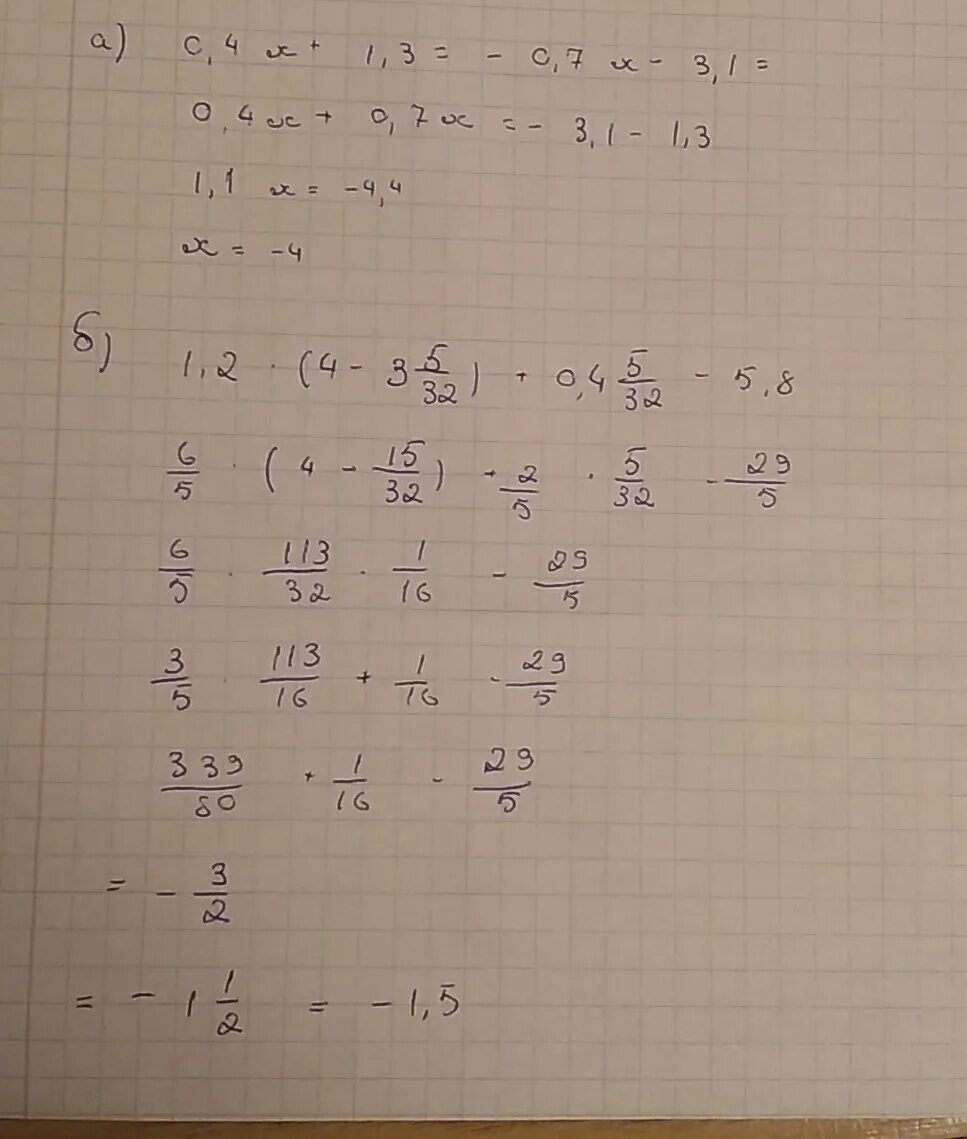 а) 0,4 х + 1,3 = - 0,7 х - 3,1 =
0,4х + 0,7х = - 3,1 - 1,3
1,1 х = -4,4
х = -4
б) 1,2 · (4 - 3 5/32) + 0,4 5/32 - 5,8
6/5 · (4 - 15/32) + 2/5 · 5/32 - 29/5
6/5 · 113/32 · 1/16 - 29/5
3/5 · 113/16 + 1/16 - 29/5
339/80 + 1/16 - 29/5
= - 3/2
= - 1 1/2 = - 1,5